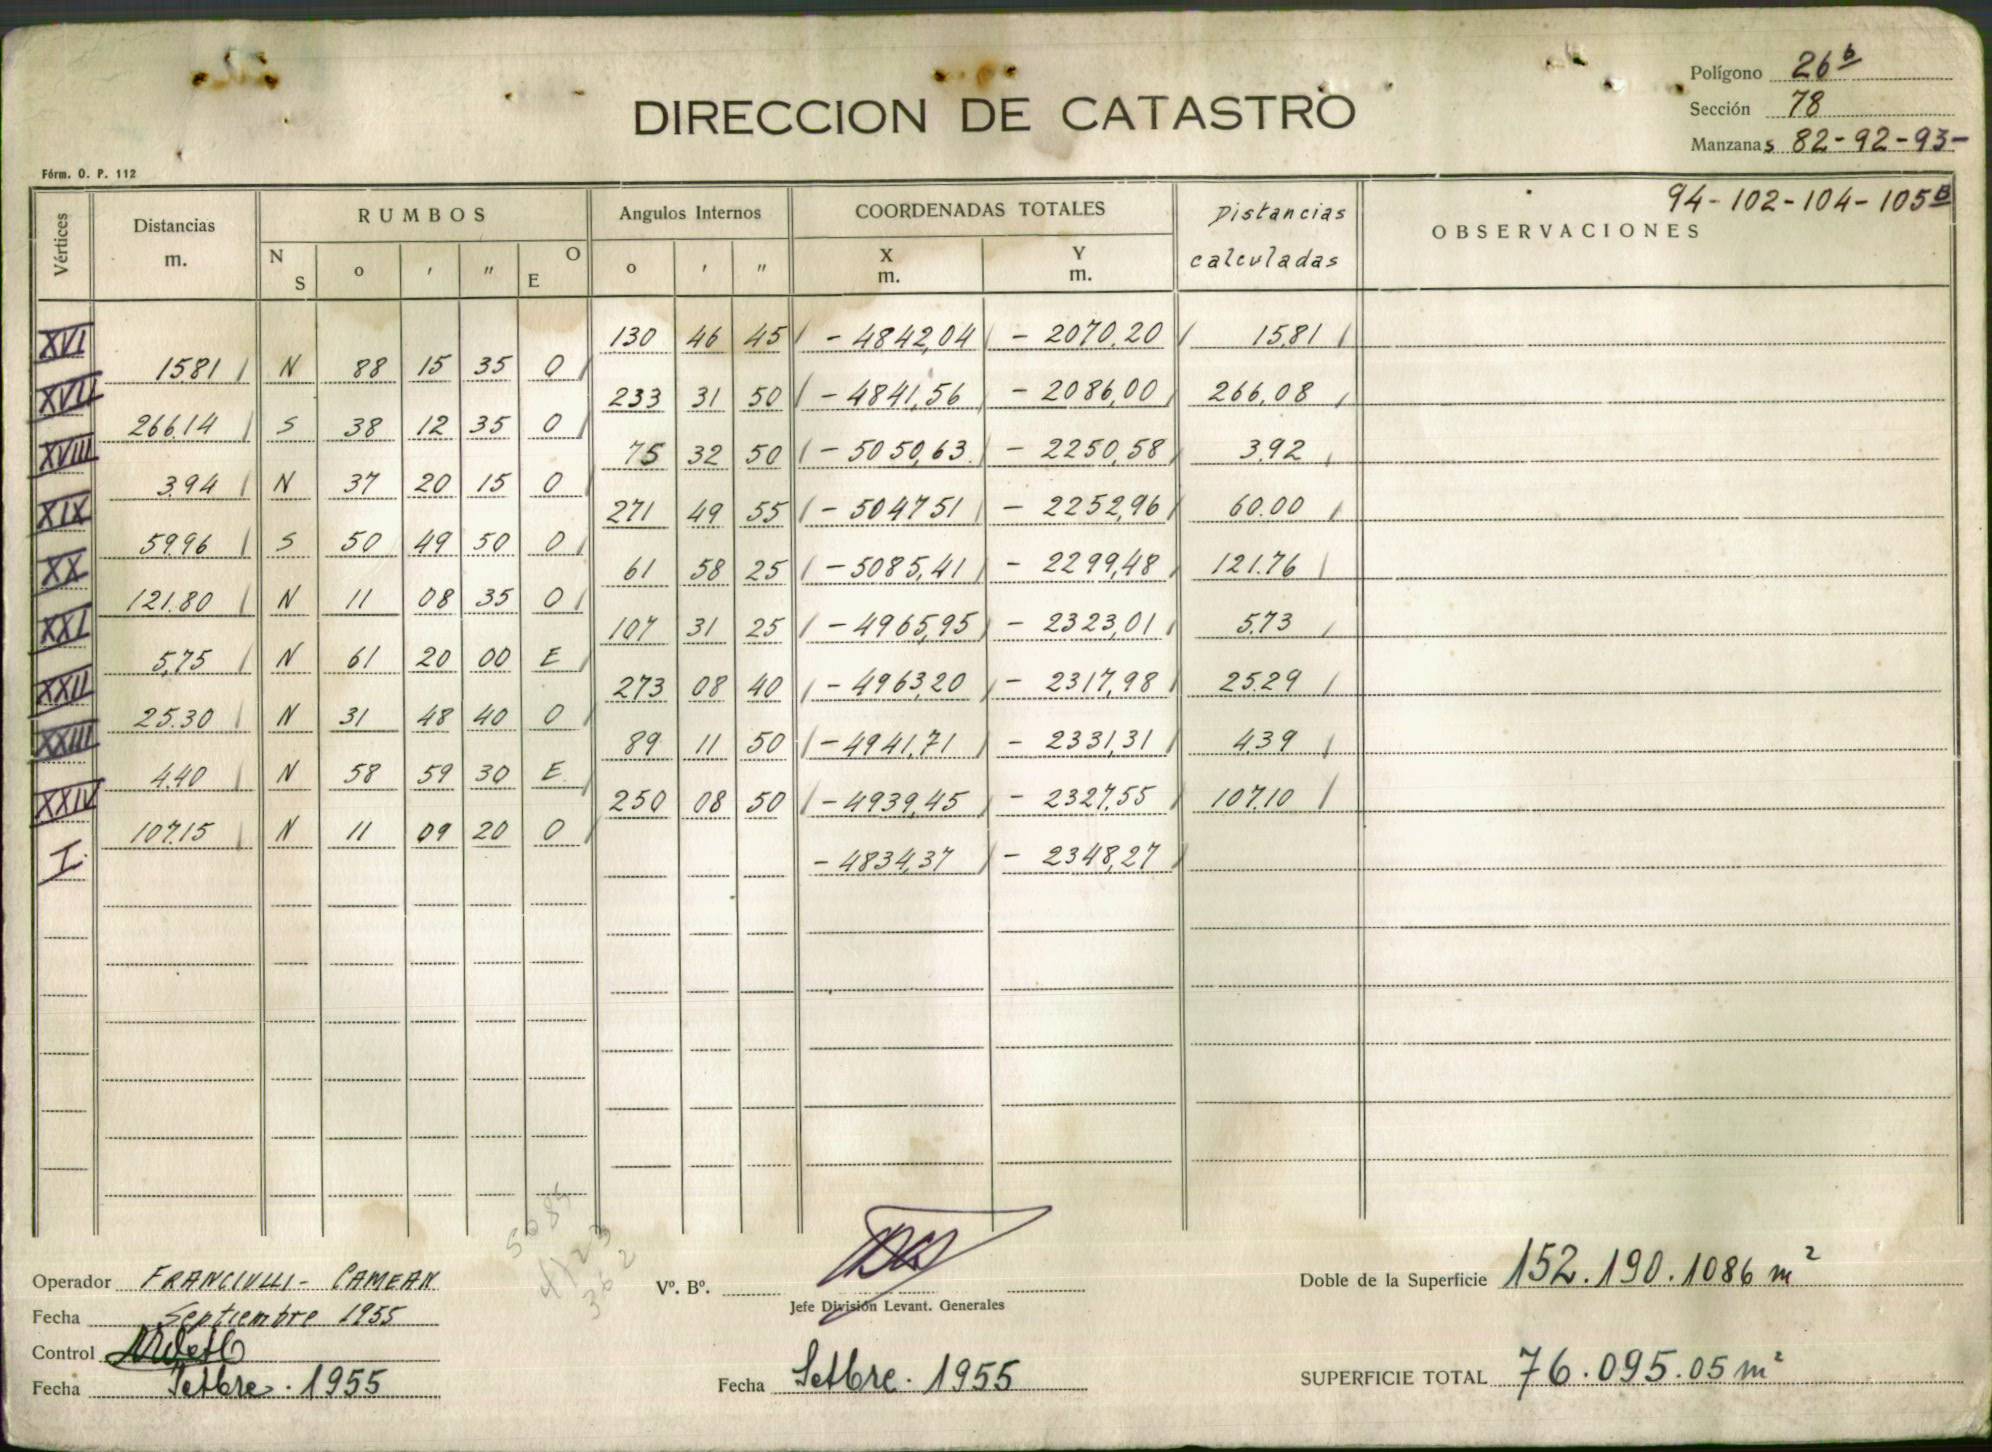 Polígono 26 b
Sección 78
DIRECCION DE CATASTRO
Manzanas 82-92-93-
Fórm. O. P. 112
94-102-104-105 B
Vértices Distancias m. RUMBOS N S o ' " E O Angulos Internos o ' " COORDENADAS TOTALES X m. Y m. Distancias calculadas OBSERVACIONES
XVI 130 46 45 - 4842,04 - 2070.20 15.81
15.81 N 88 15 35 O
XVII 233 31 50 - 4841,56 - 2086,00 266,08
266.14 S 38 12 35 O
XVIII 75 32 50 - 5050,63 - 2250,58 3.92
3.94 N 37 20 15 O
XIX 271 49 55 - 5047.51 - 2252,96 60.00
59.96 S 50 49 50 O
XX 61 58 25 - 5085,41 - 2299,48 121.76
121.80 N 11 08 35 O
XXI 107 31 25 - 4965,95 - 2323,01 5.73
5,75 N 61 20 00 E
XXII 273 08 40 - 4963,20 - 2317,98 25.29
25.30 N 31 48 40 O
XXIII 89 11 50 - 4941,71 - 2331,31 4.39
4.40 N 58 59 30 E
XXIV 250 08 50 - 4939,45 - 2327.55 107.10
107.15 N 11 09 20 O
I - 4834,37 - 2348,27
Operador FRANCIULLI - CAMEAN
Vº. Bº.
Doble de la Superficie 152.190.1086 m²
Fecha Septiembre 1955
Jefe División Levant. Generales
Control
Fecha Setbre. 1955
Fecha Setbre. 1955
SUPERFICIE TOTAL 76.095.05 m²